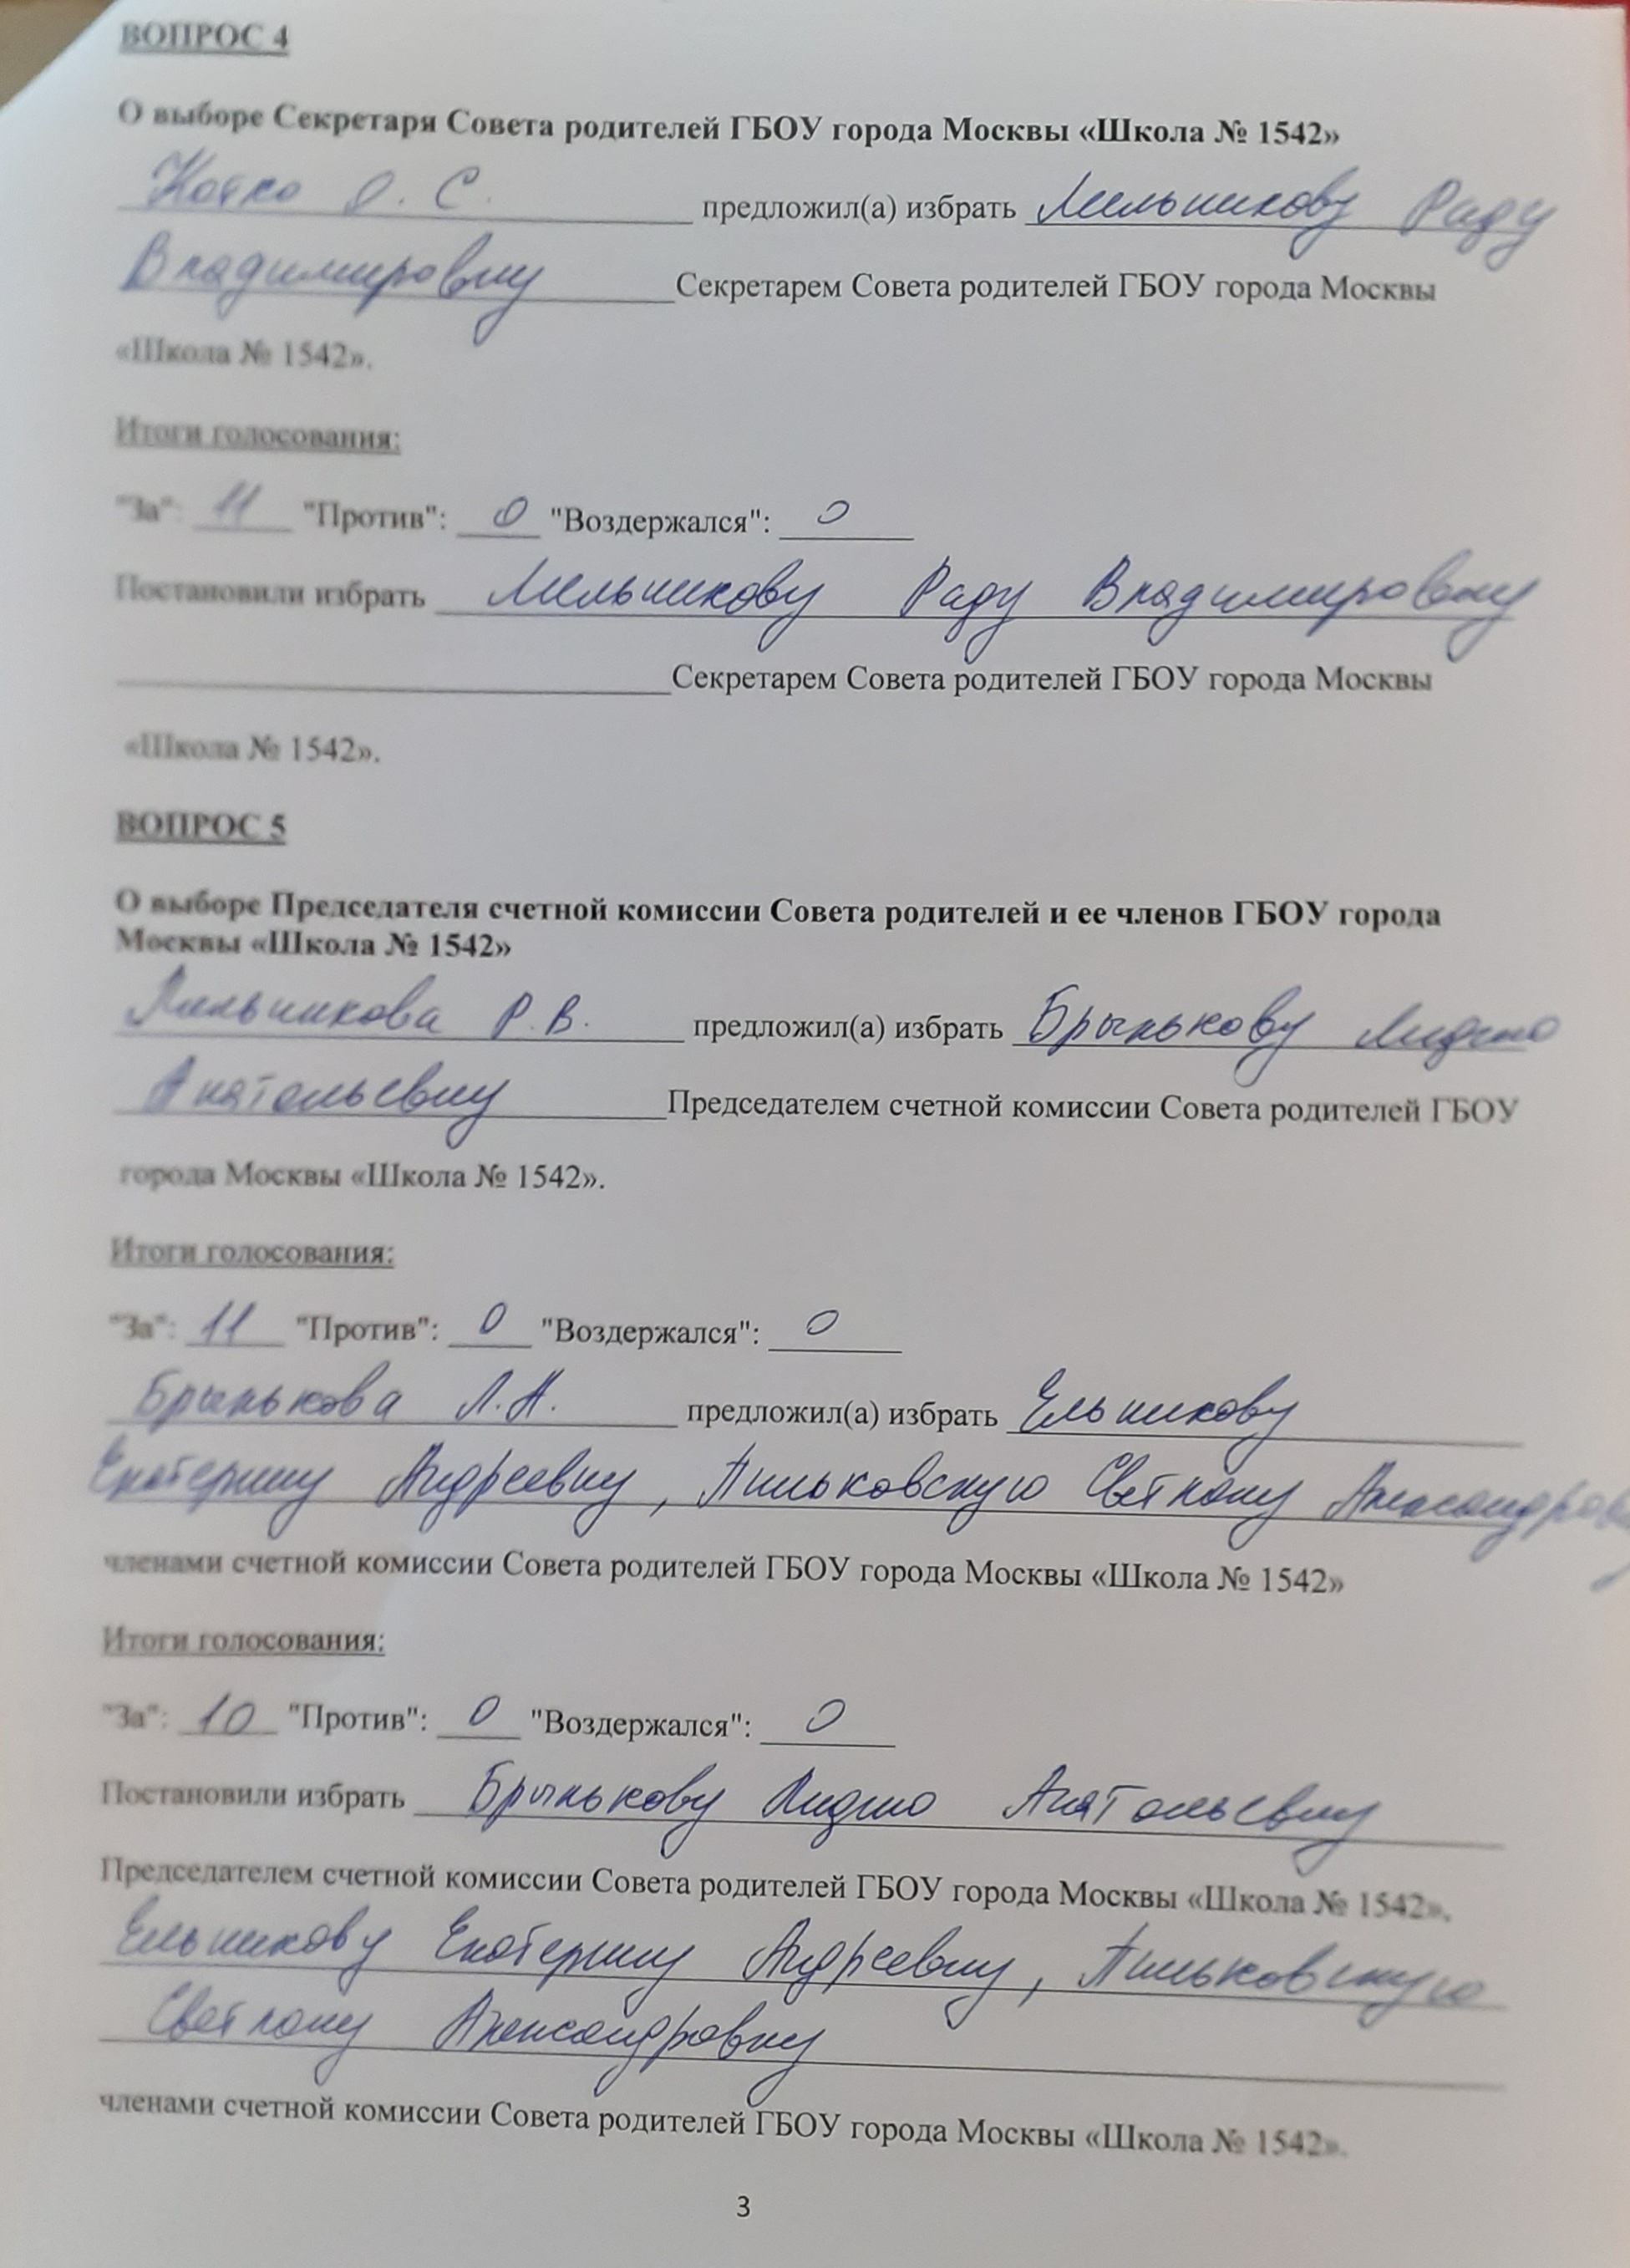 ВОПРОС 4
О выборе Секретаря Совета родителей ГБОУ города Москвы «Школа № 1542»
Котко О. С. предложил(а) избрать Мельникову Раду
Владимировну Секретарем Совета родителей ГБОУ города Москвы
«Школа № 1542».
Итоги голосования:
"За": 11 "Против": 0 "Воздержался": 0
Постановили избрать Мельникову Раду Владимировну
Секретарем Совета родителей ГБОУ города Москвы
«Школа № 1542».
ВОПРОС 5
О выборе Председателя счетной комиссии Совета родителей и ее членов ГБОУ города
Москвы «Школа № 1542»
Мельникова Р. В. предложил(а) избрать Брынькову Лидию
Анатольевну Председателем счетной комиссии Совета родителей ГБОУ
города Москвы «Школа № 1542».
Итоги голосования:
"За": 11 "Против": 0 "Воздержался": 0
Брынькова Л. А. предложил(а) избрать Ельникову
Екатерину Андреевну, Пильковскую Светлану
членами счетной комиссии Совета родителей ГБОУ города Москвы «Школа № 1542»
Итоги голосования:
"За": 10 "Против": 0 "Воздержался": 0
Постановили избрать Брынькову Лидию Анатольевну
Председателем счетной комиссии Совета родителей ГБОУ города Москвы «Школа № 1542»,
Ельникову Екатерину Андреевну, Пильковскую
Светлану Александровну
членами счетной комиссии Совета родителей ГБОУ города Москвы «Школа № 1542».
3